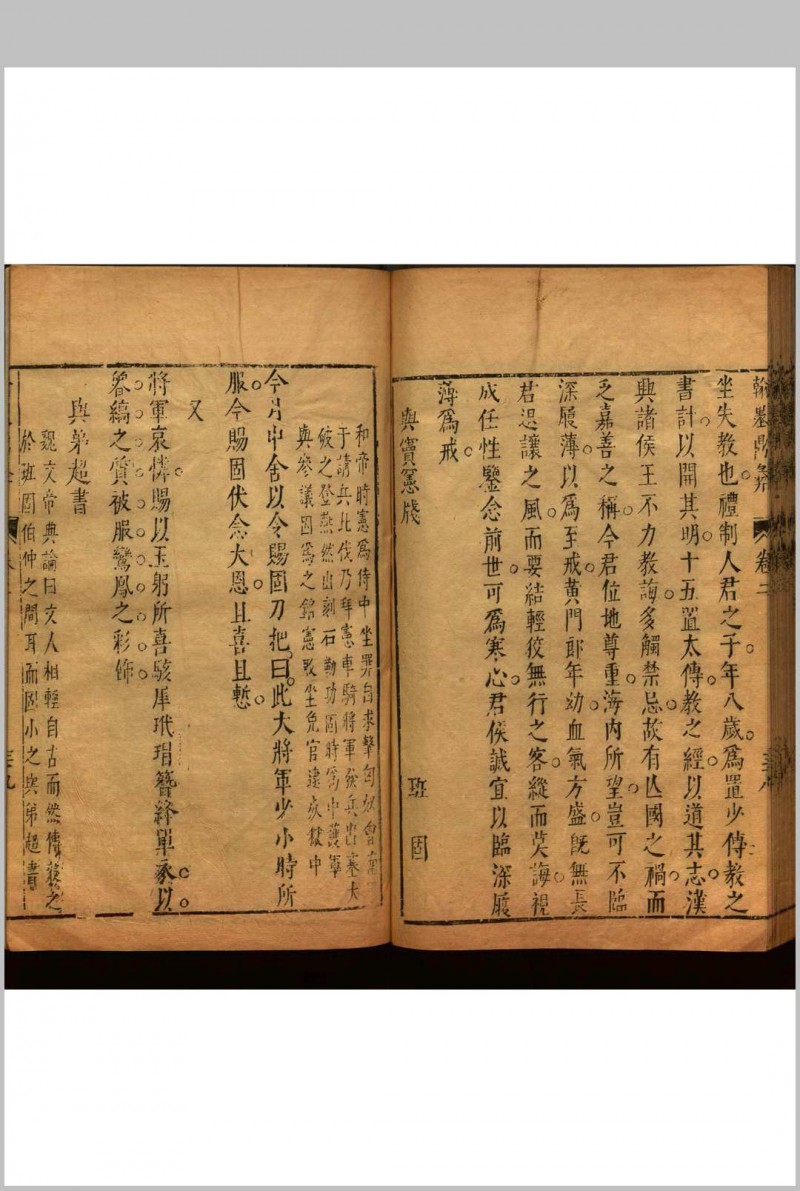 卷二
坐失教也禮制人君之子年八歲爲置少傅教之
書計以開其明十五置太傅教之經以道其志漢
興諸侯王不力教誨多觸禁忌故有亾國之禍而
乏嘉善之稱今君位地尊重海內所望豈可不臨
深履薄以爲至戒黃門郎年幼血氣方盛旣無長
君退讓之風而要結輕狡無行之客縱而莫誨視
成任性鑒念前世可爲寒心君侯誠宜以臨深履
薄爲戒
與竇憲牋 班固
和帝時憲爲侍中坐罪自求擊匈奴會南
于請兵北伐乃拜憲車騎將軍發兵出塞大
破之登燕然山刻石勒功固時爲中護軍
與參議因爲之銘憲敗坐免官逮死獄中
今月中舍以令賜固刀把曰此大將軍少小時所
服今賜固伏念大恩且喜且慙
又
將軍哀憐賜以玉躬所喜駭犀玳瑁簪絳單衣以
魯縞之質被服鸞鳳之彩飾
與弟超書
魏文帝典論曰文人相輕自古而然傅毅之
於班固伯仲之間耳而固小之與弟超書